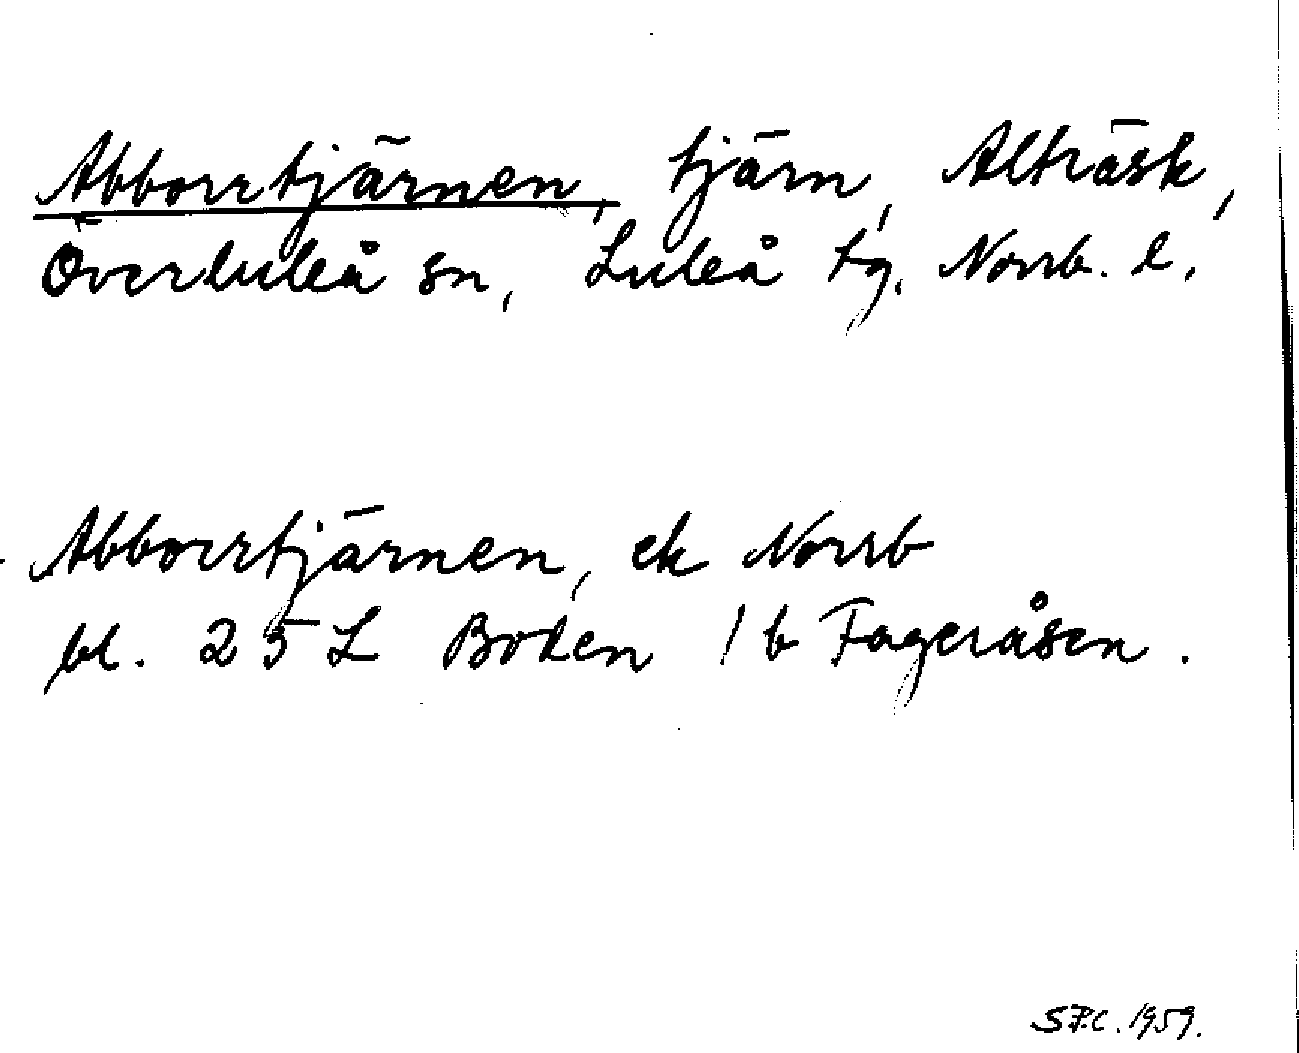 Abborrtjärnen, tjärn, Alträsk,
Överluleå sn, Luleå tg. Norrb. l.
Abborrtjärnen, ek Norrb
bl. 25 L Boden 1b Fageråsen.
S.F.C. 1959.